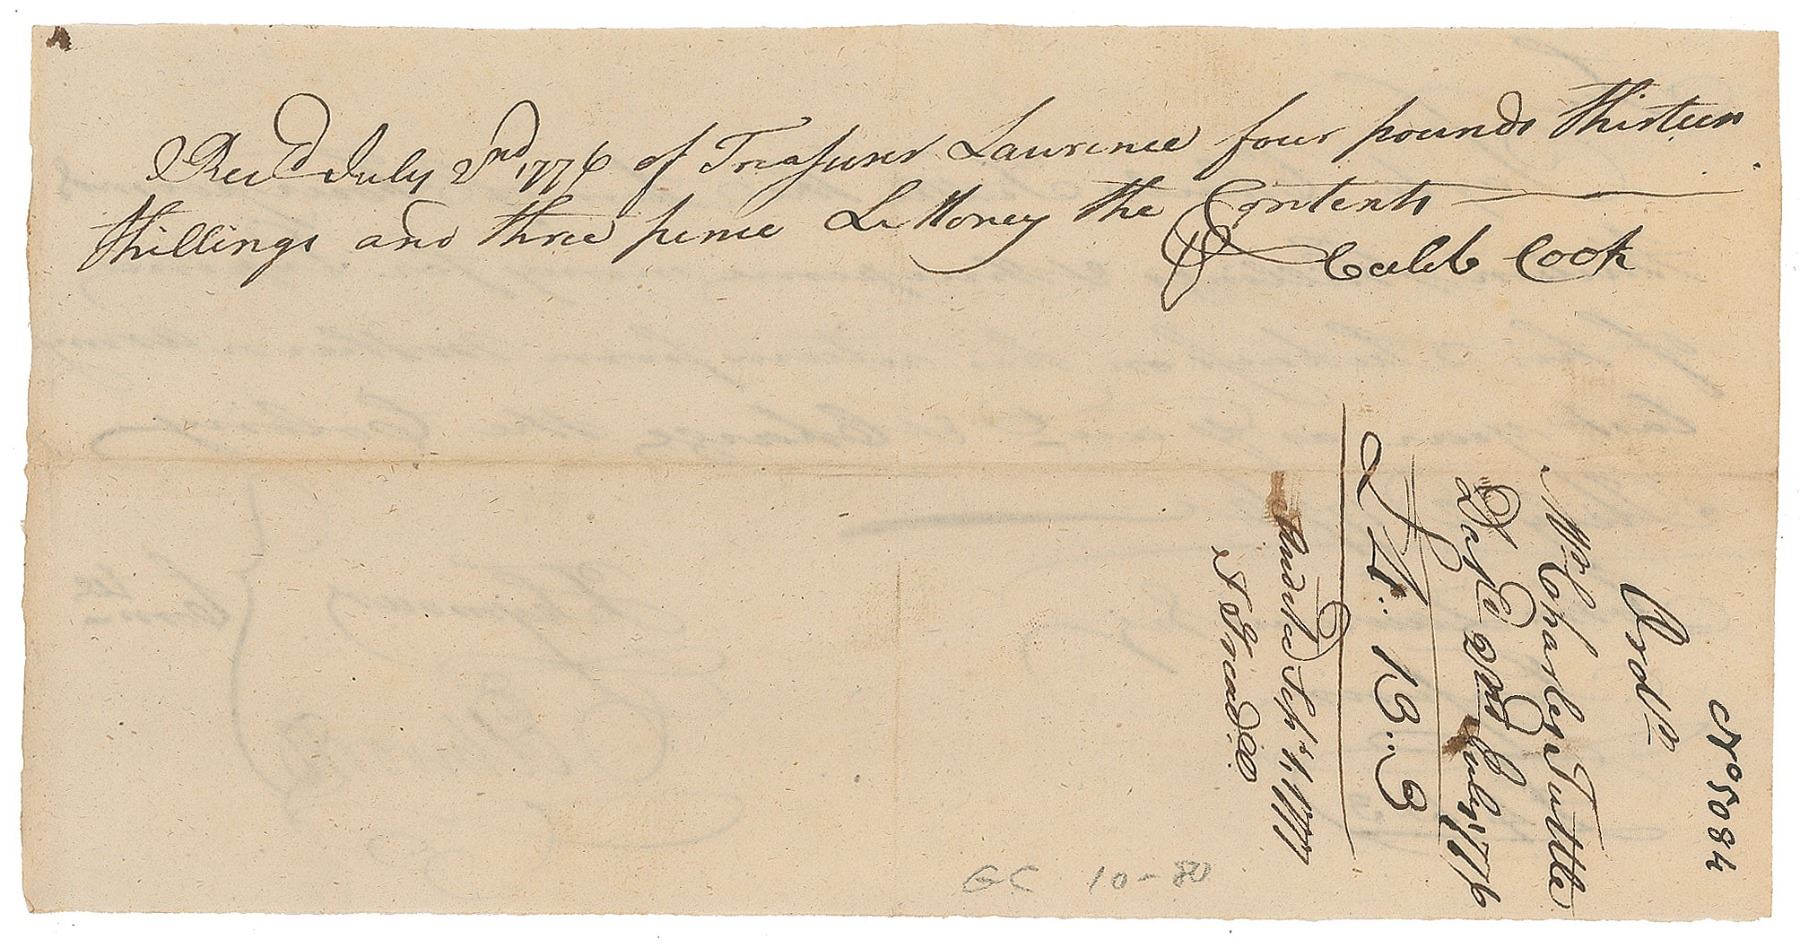 Rec.d July 2nd 1776 of Treasurer Lawrence four pounds thirteen
shillings and three pence L Money the Contents
Caleb Cook
No 5084
Ord.r
Mr Charles Tuttle
2nd July, 1776
£4..13..3
Audited Sept 1, 1777